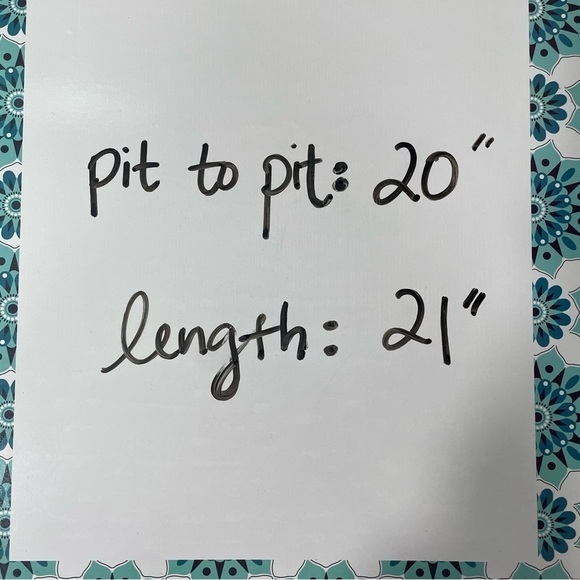 pit to pit: 20"
length: 21"